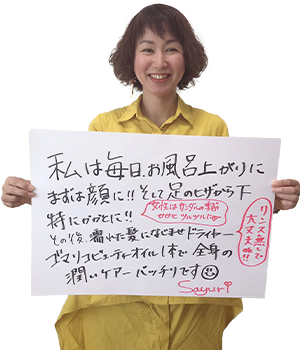 私は毎日、お風呂上がりに
まずは顔に!!そして足のヒザから下
特にかかとに!!
女性はサンダルの季節
かかとツルツルに
その後、濡れた髪になじませドライヤー
ゴマリコビューティーオイル1本で全身の
潤いケアーバッチリです
リンス無しで
大丈夫
Sayuri